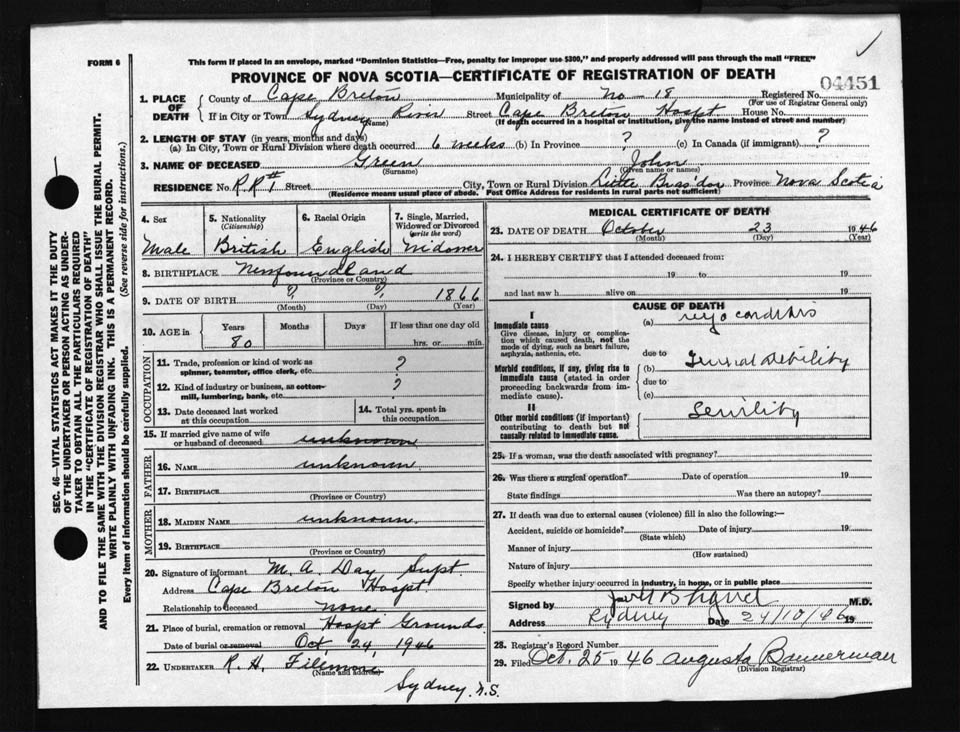 FORM 6
This form if placed in an envelope, marked "Dominion Statistics—Free, penalty for improper use $300," and properly addressed will pass through the mail "FREE"
PROVINCE OF NOVA SCOTIA—CERTIFICATE OF REGISTRATION OF DEATH
04451
1. PLACE OF DEATH
County of Cape Breton Municipality of No - 18 Registered No.
(For use of Registrar General only)
If in City or Town Sydney River Street Cape Breton Hospt House No.
(Name) (If death occurred in a hospital or institution, give the name instead of street and number)
2. LENGTH OF STAY (in years, months and days)
(a) In City, Town or Rural Division where death occurred 6 weeks (b) In Province ? (c) In Canada (if immigrant) ?
3. NAME OF DECEASED Green John
(Surname) (Given name or names)
RESIDENCE No. R.R #1 Street City, Town or Rural Division Little Bras'dor Province Nova Scotia
(Residence means usual place of abode. Post Office Address for residents in rural parts not sufficient)
4. Sex 5. Nationality (Citizenship) 6. Racial Origin 7. Single, Married, Widowed or Divorced (write the word)
Male British English Widower
8. BIRTHPLACE Newfoundland
(Province or Country)
9. DATE OF BIRTH ? ? 1866
(Month) (Day) (Year)
10. AGE in Years Months Days If less than one day old
80 hrs. or min.
OCCUPATION
11. Trade, profession or kind of work as spinner, teamster, office clerk, etc. ?
12. Kind of industry or business, as cotton-mill, lumbering, bank, etc. ?
13. Date deceased last worked at this occupation
14. Total yrs. spent in this occupation
15. If married give name of wife or husband of deceased unknown
FATHER
16. NAME unknown
17. BIRTHPLACE
(Province or Country)
MOTHER
18. MAIDEN NAME unknown.
19. BIRTHPLACE
(Province or Country)
20. Signature of informant M. A. Day Supt.
Address Cape Breton Hospt.
Relationship to deceased none
21. Place of burial, cremation or removal Hospt Grounds
Date of burial or removal Oct, 24, 1946
22. UNDERTAKER R. H. Filmore
(Name and address)
Sydney, N.S.
MEDICAL CERTIFICATE OF DEATH
23. DATE OF DEATH October 23 1946
(Month) (Day) (Year)
24. I HEREBY CERTIFY that I attended deceased from:
19 to 19
and last saw h alive on 19
CAUSE OF DEATH
I
Immediate cause
Give disease, injury or complication which caused death, not the mode of dying, such as heart failure, asphyxia, asthenia, etc.
(a) myocarditis
due to
Morbid conditions, if any, giving rise to immediate cause (stated in order proceeding backwards from immediate cause).
(b) General debility
due to
(c)
II
Other morbid conditions (if important) contributing to death but not causally related to immediate cause.
Senility
25. If a woman, was the death associated with pregnancy?
26. Was there a surgical operation? Date of operation 19
State findings Was there an autopsy?
27. If death was due to external causes (violence) fill in also the following:—
Accident, suicide or homicide? Date of injury 19
(State which)
Manner of injury
(How sustained)
Nature of injury
Specify whether injury occurred in industry, in home, or in public place
Signed by M.D.
Address Sydney Date 24/10/46 19
28. Registrar's Record Number
29. Filed Oct. 25 1946 Augusta Bannerman
(Division Registrar)
SEC. 46—VITAL STATISTICS ACT MAKES IT THE DUTY
OF THE UNDERTAKER OR PERSON ACTING AS UNDER-
TAKER TO OBTAIN ALL THE PARTICULARS REQUIRED
IN THE "CERTIFICATE OF REGISTRATION OF DEATH"
AND TO FILE THE SAME WITH THE DIVISION REGISTRAR WHO SHALL ISSUE THE BURIAL PERMIT.
WRITE PLAINLY WITH UNFADING INK. THIS IS A PERMANENT RECORD.
Every item of information should be carefully supplied. (See reverse side for instructions.)